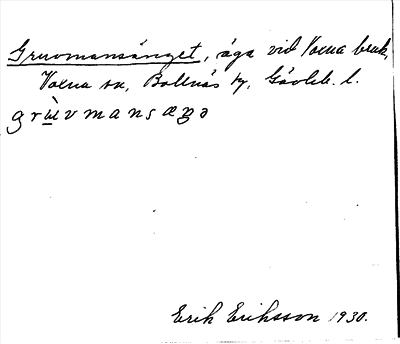 Gruvmansänget, äga vid Voxna bruk,
Voxna sn, Bollnäs tg, Gävleb. l.
grùvmansæŋə
Erik Eriksson 1930.